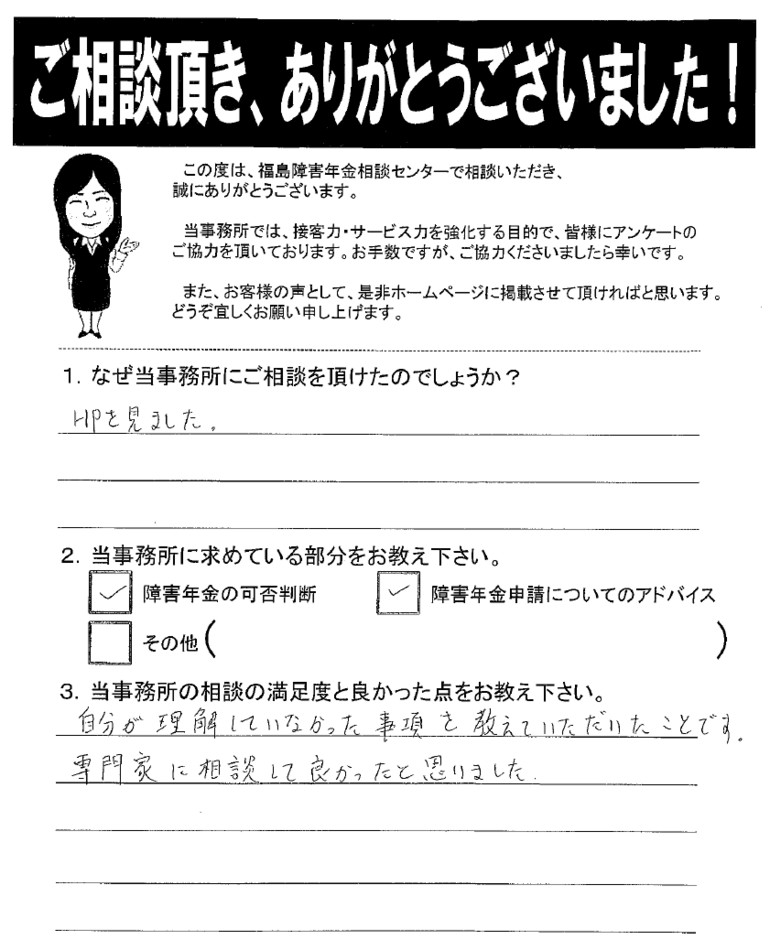 ご相談頂き、ありがとうございました！
この度は、福島障害年金相談センターで相談いただき、
誠にありがとうございます。
当事務所では、接客力・サービス力を強化する目的で、皆様にアンケートの
ご協力を頂いております。お手数ですが、ご協力くださいましたら幸いです。
また、お客様の声として、是非ホームページに掲載させて頂ければと思います。
どうぞ宜しくお願い申し上げます。
1. なぜ当事務所にご相談を頂けたのでしょうか？
HPを見ました。
2. 当事務所に求めている部分をお教え下さい。
障害年金の可否判断 障害年金申請についてのアドバイス
その他（ ）
3. 当事務所の相談の満足度と良かった点をお教え下さい。
自分が理解していなかった事項を教えていただいたことです。
専門家に相談して良かったと思いました.